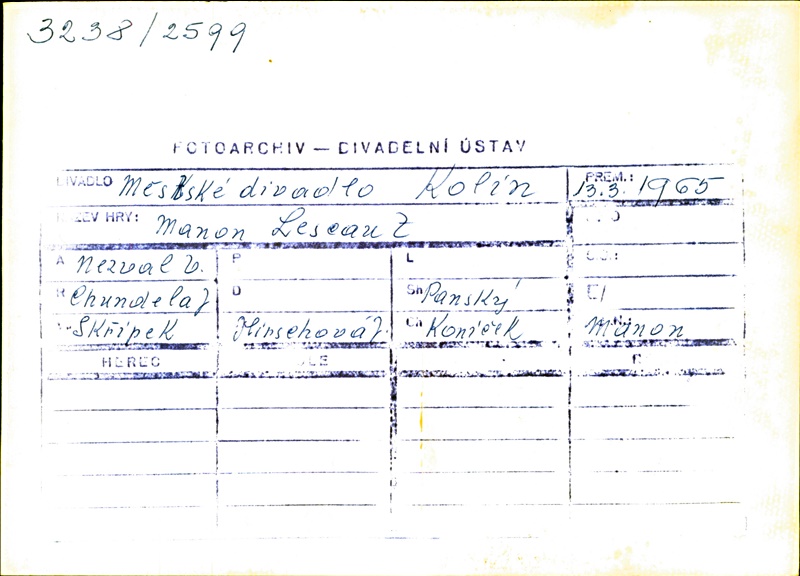 3238/2599
FOTOARCHIV — DIVADELNÍ ÚSTAV
DIVADLO Městské divadlo Kolín PREM.: 13.3.1965
NÁZEV HRY: Manon Lescaut
A Nezval V. P L
R Chundela J D Sn Panský
Skřípek Hirschová J. Ch Koníček Manon
HEREC